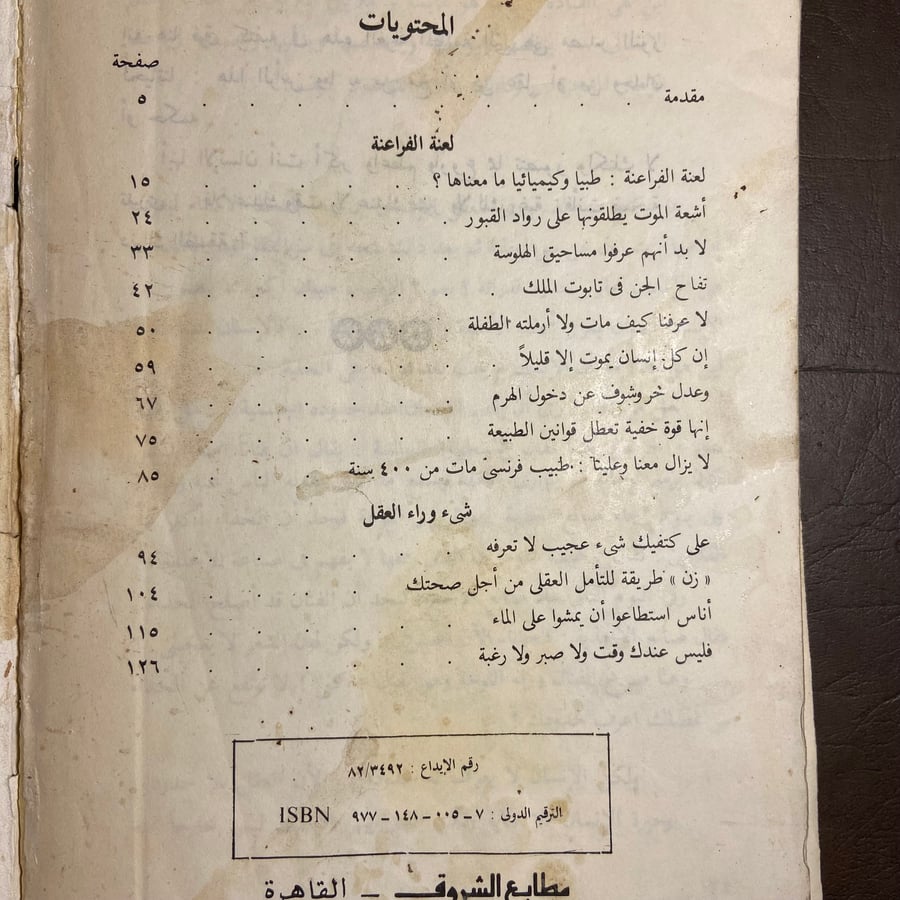 المحتويات
صفحة
مقدمة . . . . . . . . . . ٥
لعنة الفراعنة
لعنة الفراعنة : طبيا وكيميائيا ما معناها ؟ . . . . . . ١٥
أشعة الموت يطلقونها على رواد القبور . . . . . . ٢٤
لا بد أنهم عرفوا مساحيق الهلوسة . . . . . . ٣٣
تفاح الجن فى تابوت الملك . . . . . . ٤٢
لا عرفنا كيف مات ولا أرملته الطفلة . . . . . . ٥٠
إن كل إنسان يموت إلا قليلاً . . . . . . ٥٩
وعدل خروشوف عن دخول الهرم . . . . . . ٦٧
إنها قوة خفية تعطل قوانين الطبيعة . . . . . . ٧٥
لا يزال معنا وعلينا : طبيب فرنسى مات من ٤٠٠ سنة . . . ٨٥
شىء وراء العقل
على كتفيك شىء عجيب لا تعرفه . . . . . . ٩٤
« زن » طريقة للتأمل العقلى من أجل صحتك . . . . . ١٠٤
أناس استطاعوا أن يمشوا على الماء . . . . . . ١١٥
فليس عندك وقت ولا صبر ولا رغبة . . . . . . ١٢٦
رقم الإيداع : ٨٢/٣٤٩٢
الترقيم الدولى : ٧ – ٠٠٥ – ١٤٨ – ٩٧٧ ISBN
مطابع الشروق – القاهرة